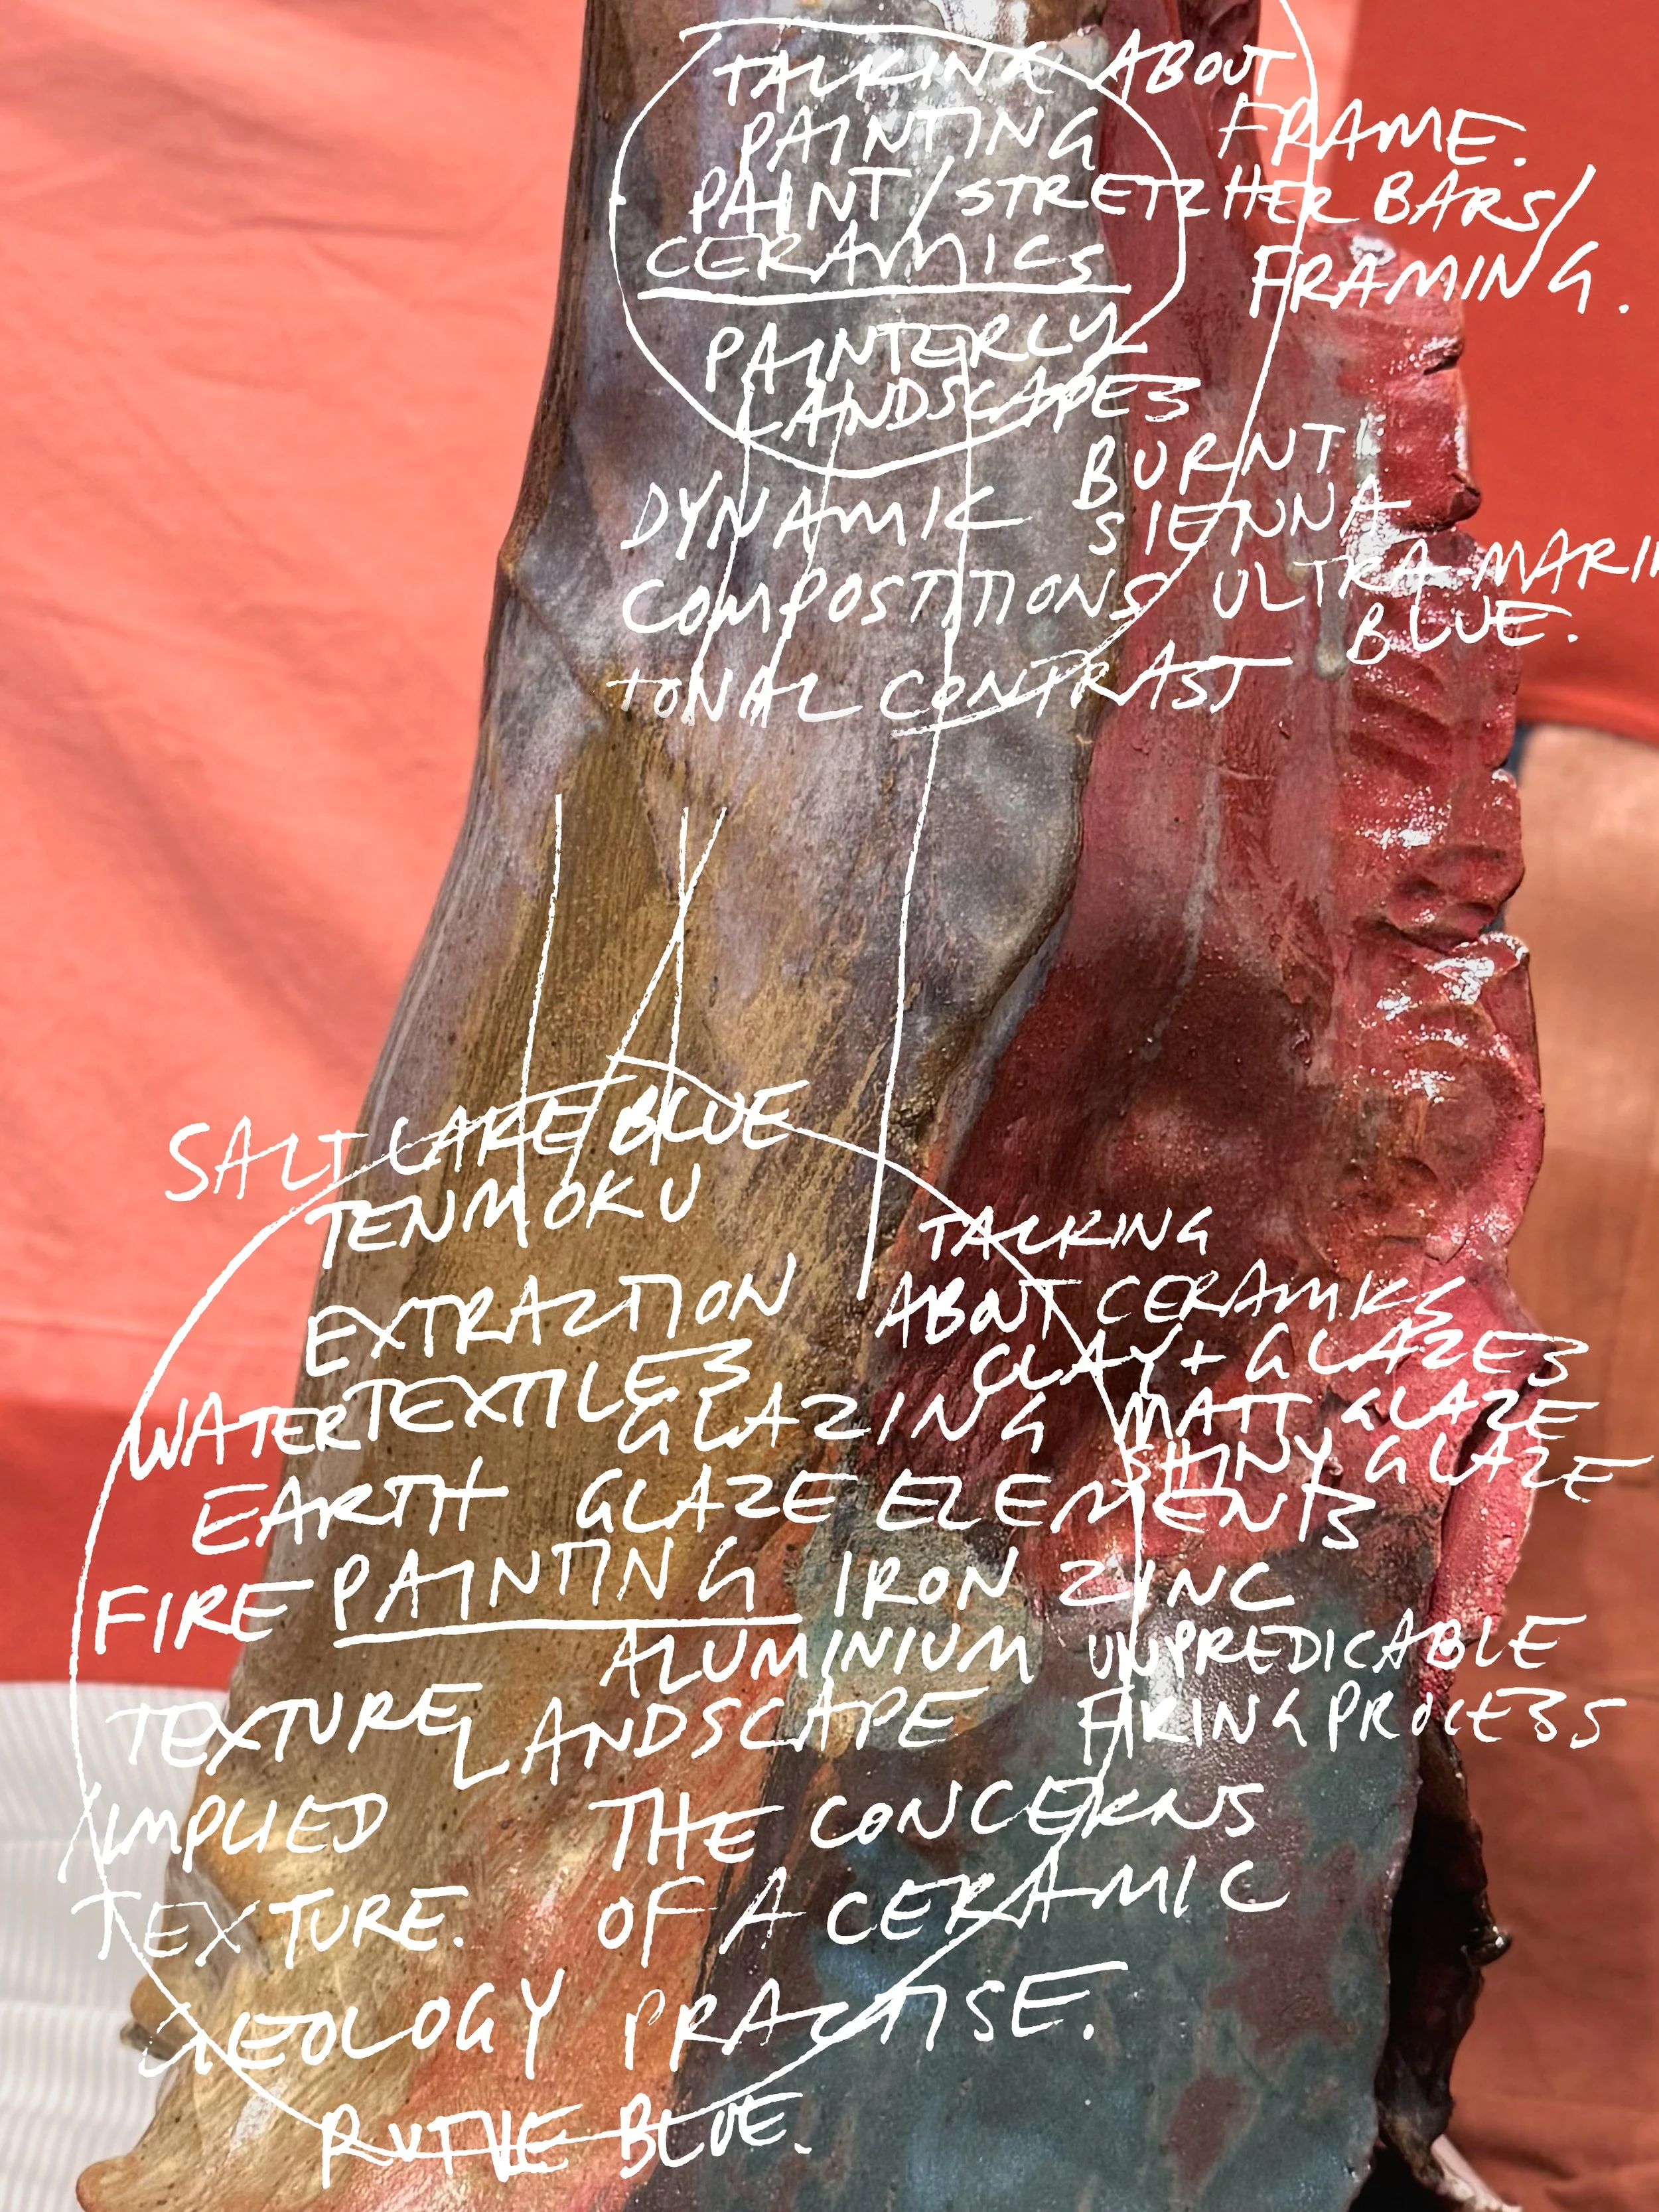 TALKING ABOUT
PAINTING FRAME.
PAINT/STRETCHER BARS/
CERAMICS FRAMING.
PAINTERLY
LANDSCAPES
BURNT
DYNAMIC SIENNA
COMPOSTITIONS ULTRA-MARIN
BLUE.
TONAL CONTRAST
SALT LAKE/BLUE
TENMOKU
TALKING
EXTRACTION ABOUT CERAMICS
TEXTILES CLAY + GLAZES
WATER GLAZING MATT GLAZE
SHINY GLAZE
EARTH GLAZE ELEMENTS
FIRE PAINTING IRON ZINC
ALUMINIUM UNPREDICABLE
TEXTURE LANDSCAPE FIRING PROCESS
IMPLIED THE CONCERNS
TEXTURE. OF A CERAMIC
GEOLOGY PRACTISE.
RUTILE BLUE.